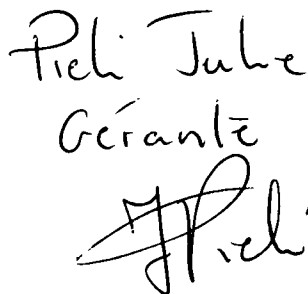 Pieli Julie
Gérante
JPieli